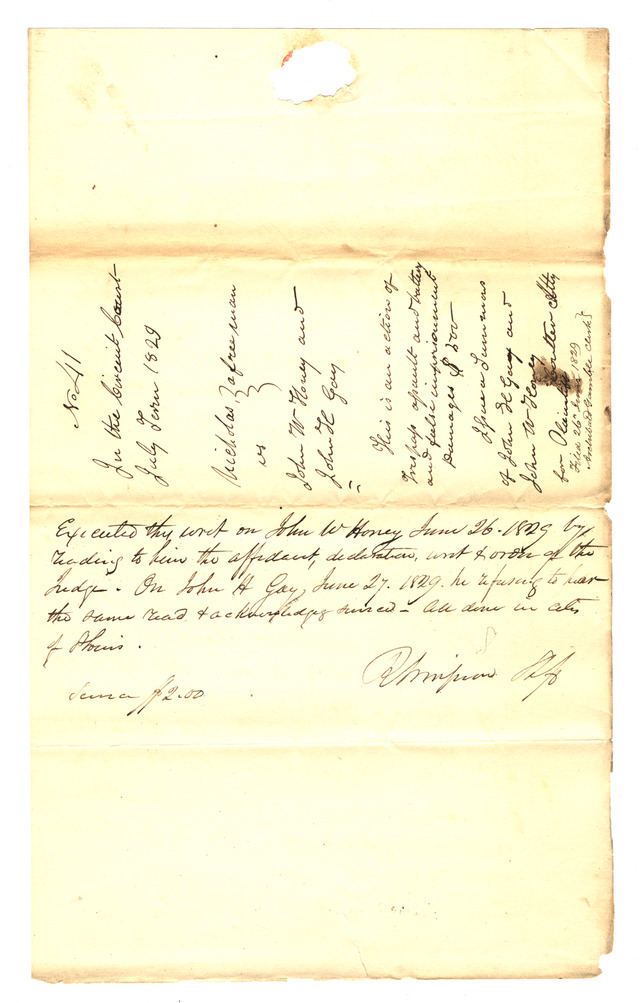 No 41
In the Circuit Court
July Term 1829
Nicholas a free man
vs
John W Honey and
John H Gay
This is an action of
trespass assault and battery
and false imprisonment
Damages $ 500
Issue a Summons
of John H Gay and
John W Honey
for Plaintiff Atty
Filed 26th June 1829
Archibald Gamble Clerk
Executed this writ on John W Honey June 26. 1829 by
reading to him the affidavit, declaration, writ & order of the
Judge. On John H Gay, June 27. 1829. he refusing to hear
the same read & acknowledging service - All done in City
of St Louis.
R Simpson Shff
Service $2.00